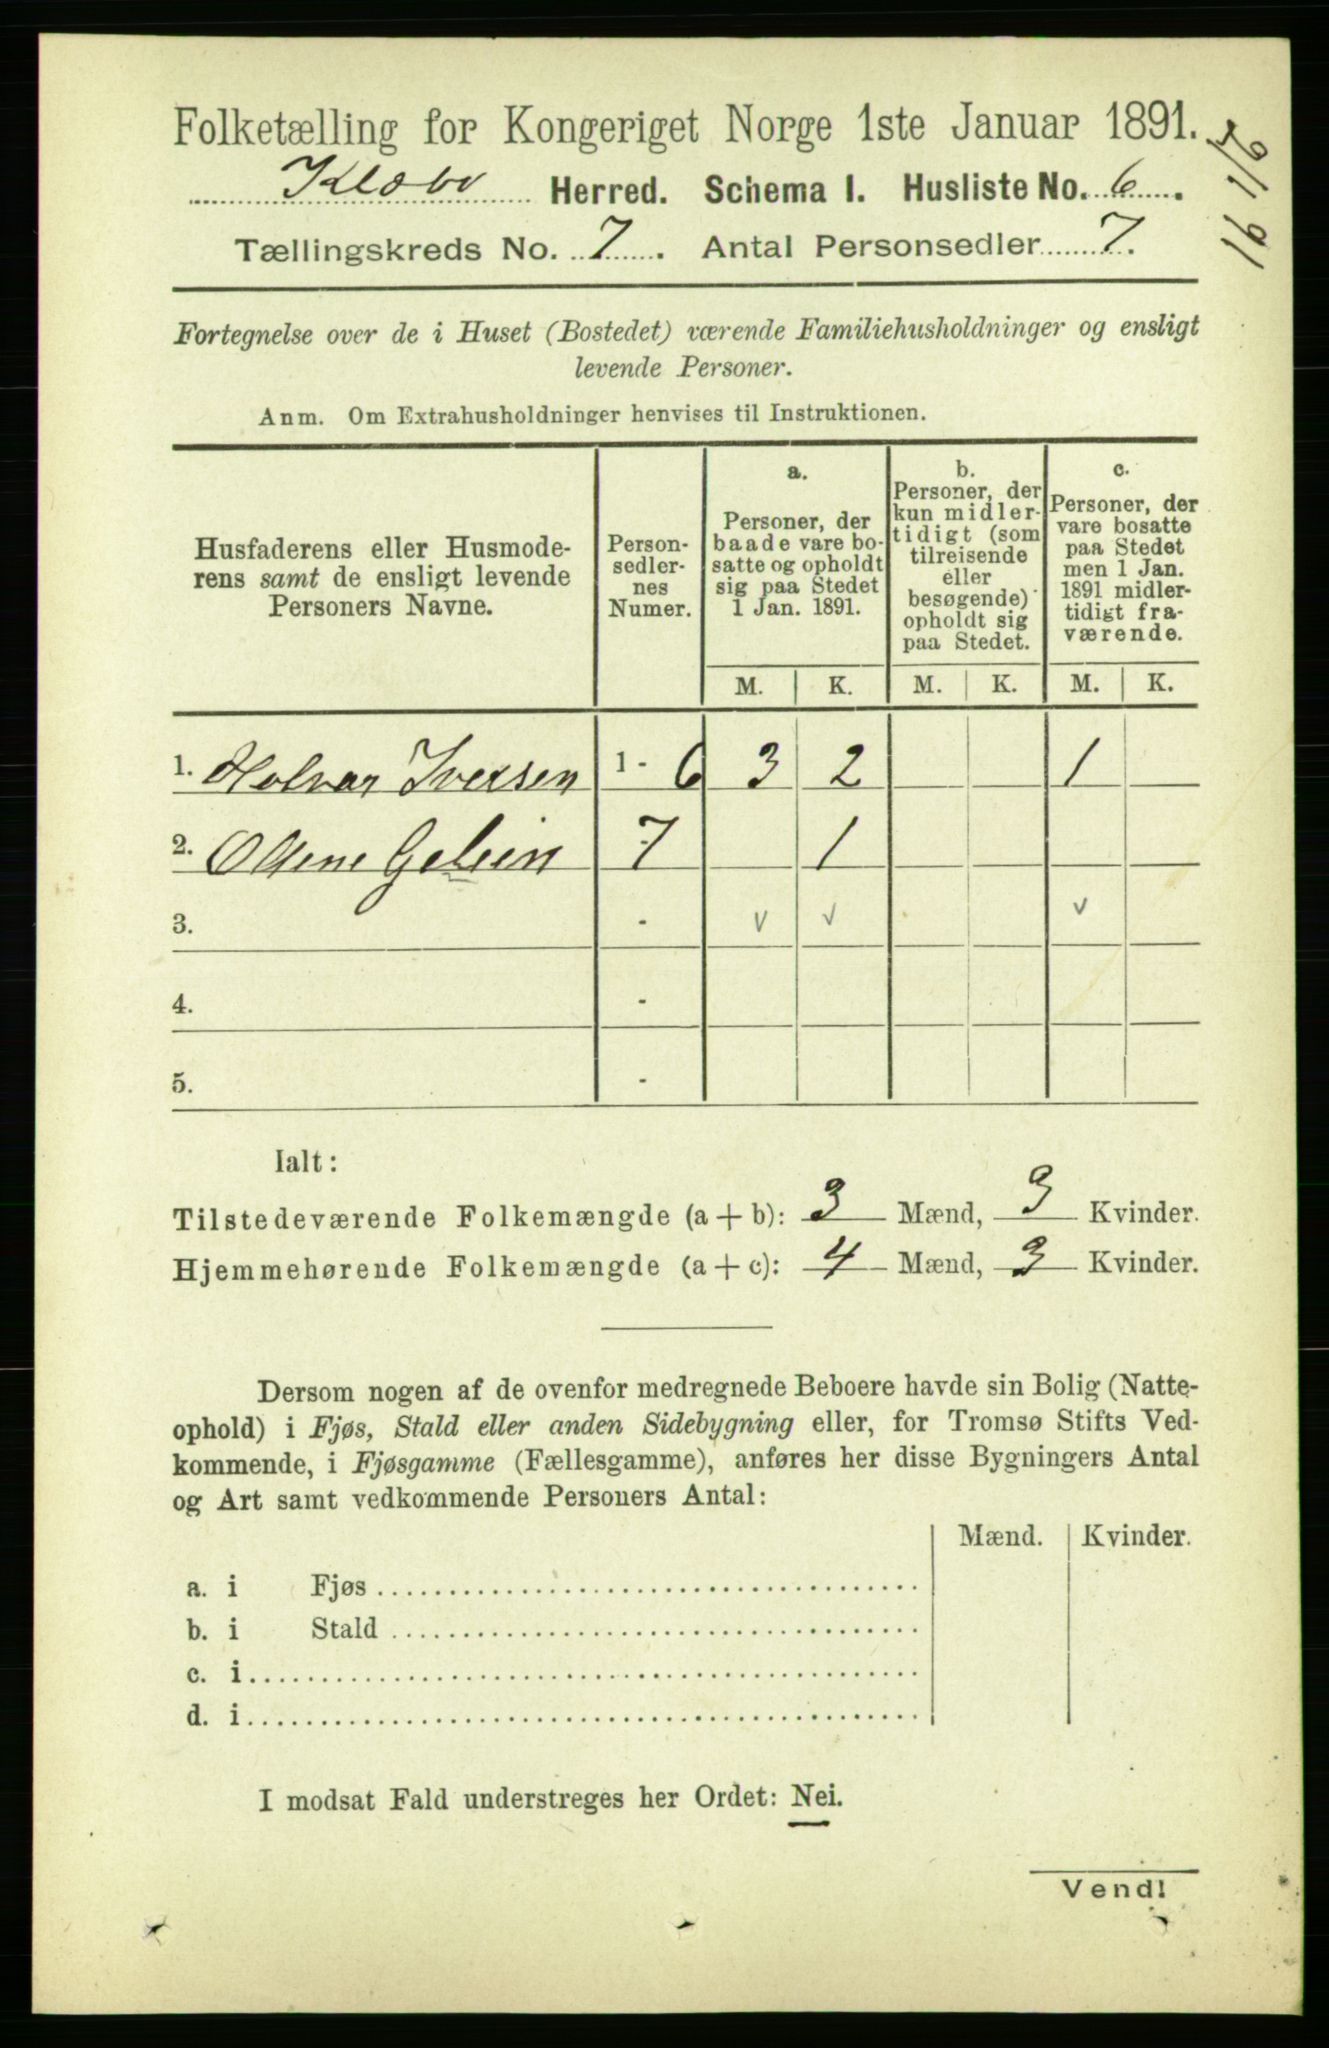 Folketælling for Kongeriget Norge 1ste Januar 1891.
Klæbu Herred. Schema I. Husliste No. 6.
Tællingskreds No. 7. Antal Personsedler 7.
Fortegnelse over de i Huset (Bostedet) værende Familiehusholdninger og ensligt
levende Personer.
Anm. Om Extrahusholdninger henvises til Instruktionen.
Husfaderens eller Husmode-
rens samt de ensligt levende
Personers Navne.
Person-
sedler-
nes
Numer.
a.
Personer, der
baade vare bo-
satte og opholdt
sig paa Stedet
1 Jan. 1891.
b.
Personer, der
kun midler-
tidigt (som
tilreisende
eller
besøgende)
opholdt sig
paa Stedet.
c.
Personer, der
vare bosatte
paa Stedet
men 1 Jan.
1891 midler-
tidigt fra-
værende.
M. K. M. K. M. K.
1. Halvar Iversen 1 - 6 3 2 1
2. Oline 7 1
3. - v v v
4. -
5. -
Ialt:
Tilstedeværende Folkemængde (a + b): 3 Mænd, 3 Kvinder.
Hjemmehørende Folkemængde (a + c): 4 Mænd, 3 Kvinder.
Dersom nogen af de ovenfor medregnede Beboere havde sin Bolig (Natte-
ophold) i Fjøs, Stald eller anden Sidebygning eller, for Tromsø Stifts Ved-
kommende, i Fjøsgamme (Fællesgamme), anføres her disse Bygningers Antal
og Art samt vedkommende Personers Antal:
Mænd. Kvinder.
a. i Fjøs
b. i Stald
c. i
d. i
I modsat Fald understreges her Ordet: Nei.
Vend!